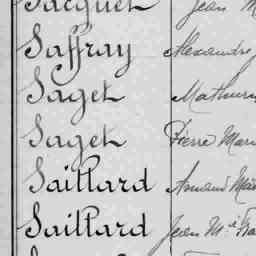 Jacquet Jean
Saffray Alexandre
Saget Mathurin
Saget Pierre Mari
Saillard Armand
Saillard Jean M.